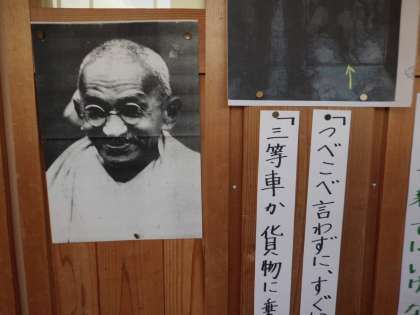 『つべこべ言わずに、すぐに
『三等車か貨物に乗